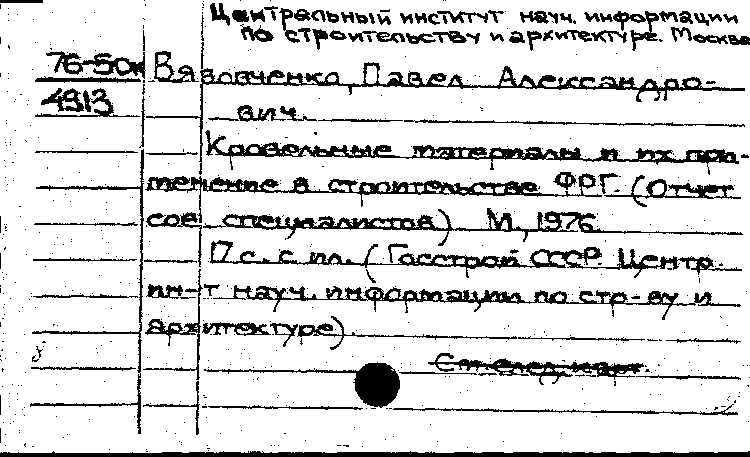 Центральный институт науч. информации
по строительству и архитектуре. Москва
76-50к Вязовченко, Павел Александро-
4913 вич.
Кровельные материалы и их при-
менение в строительстве ФРГ. (Отчет
сов. специалистов) М., 1976
17 с. с ил. (Госстрой СССР. Центр.
ин-т науч. информации по стр-ву и
архитектуре).
См. след. карт.